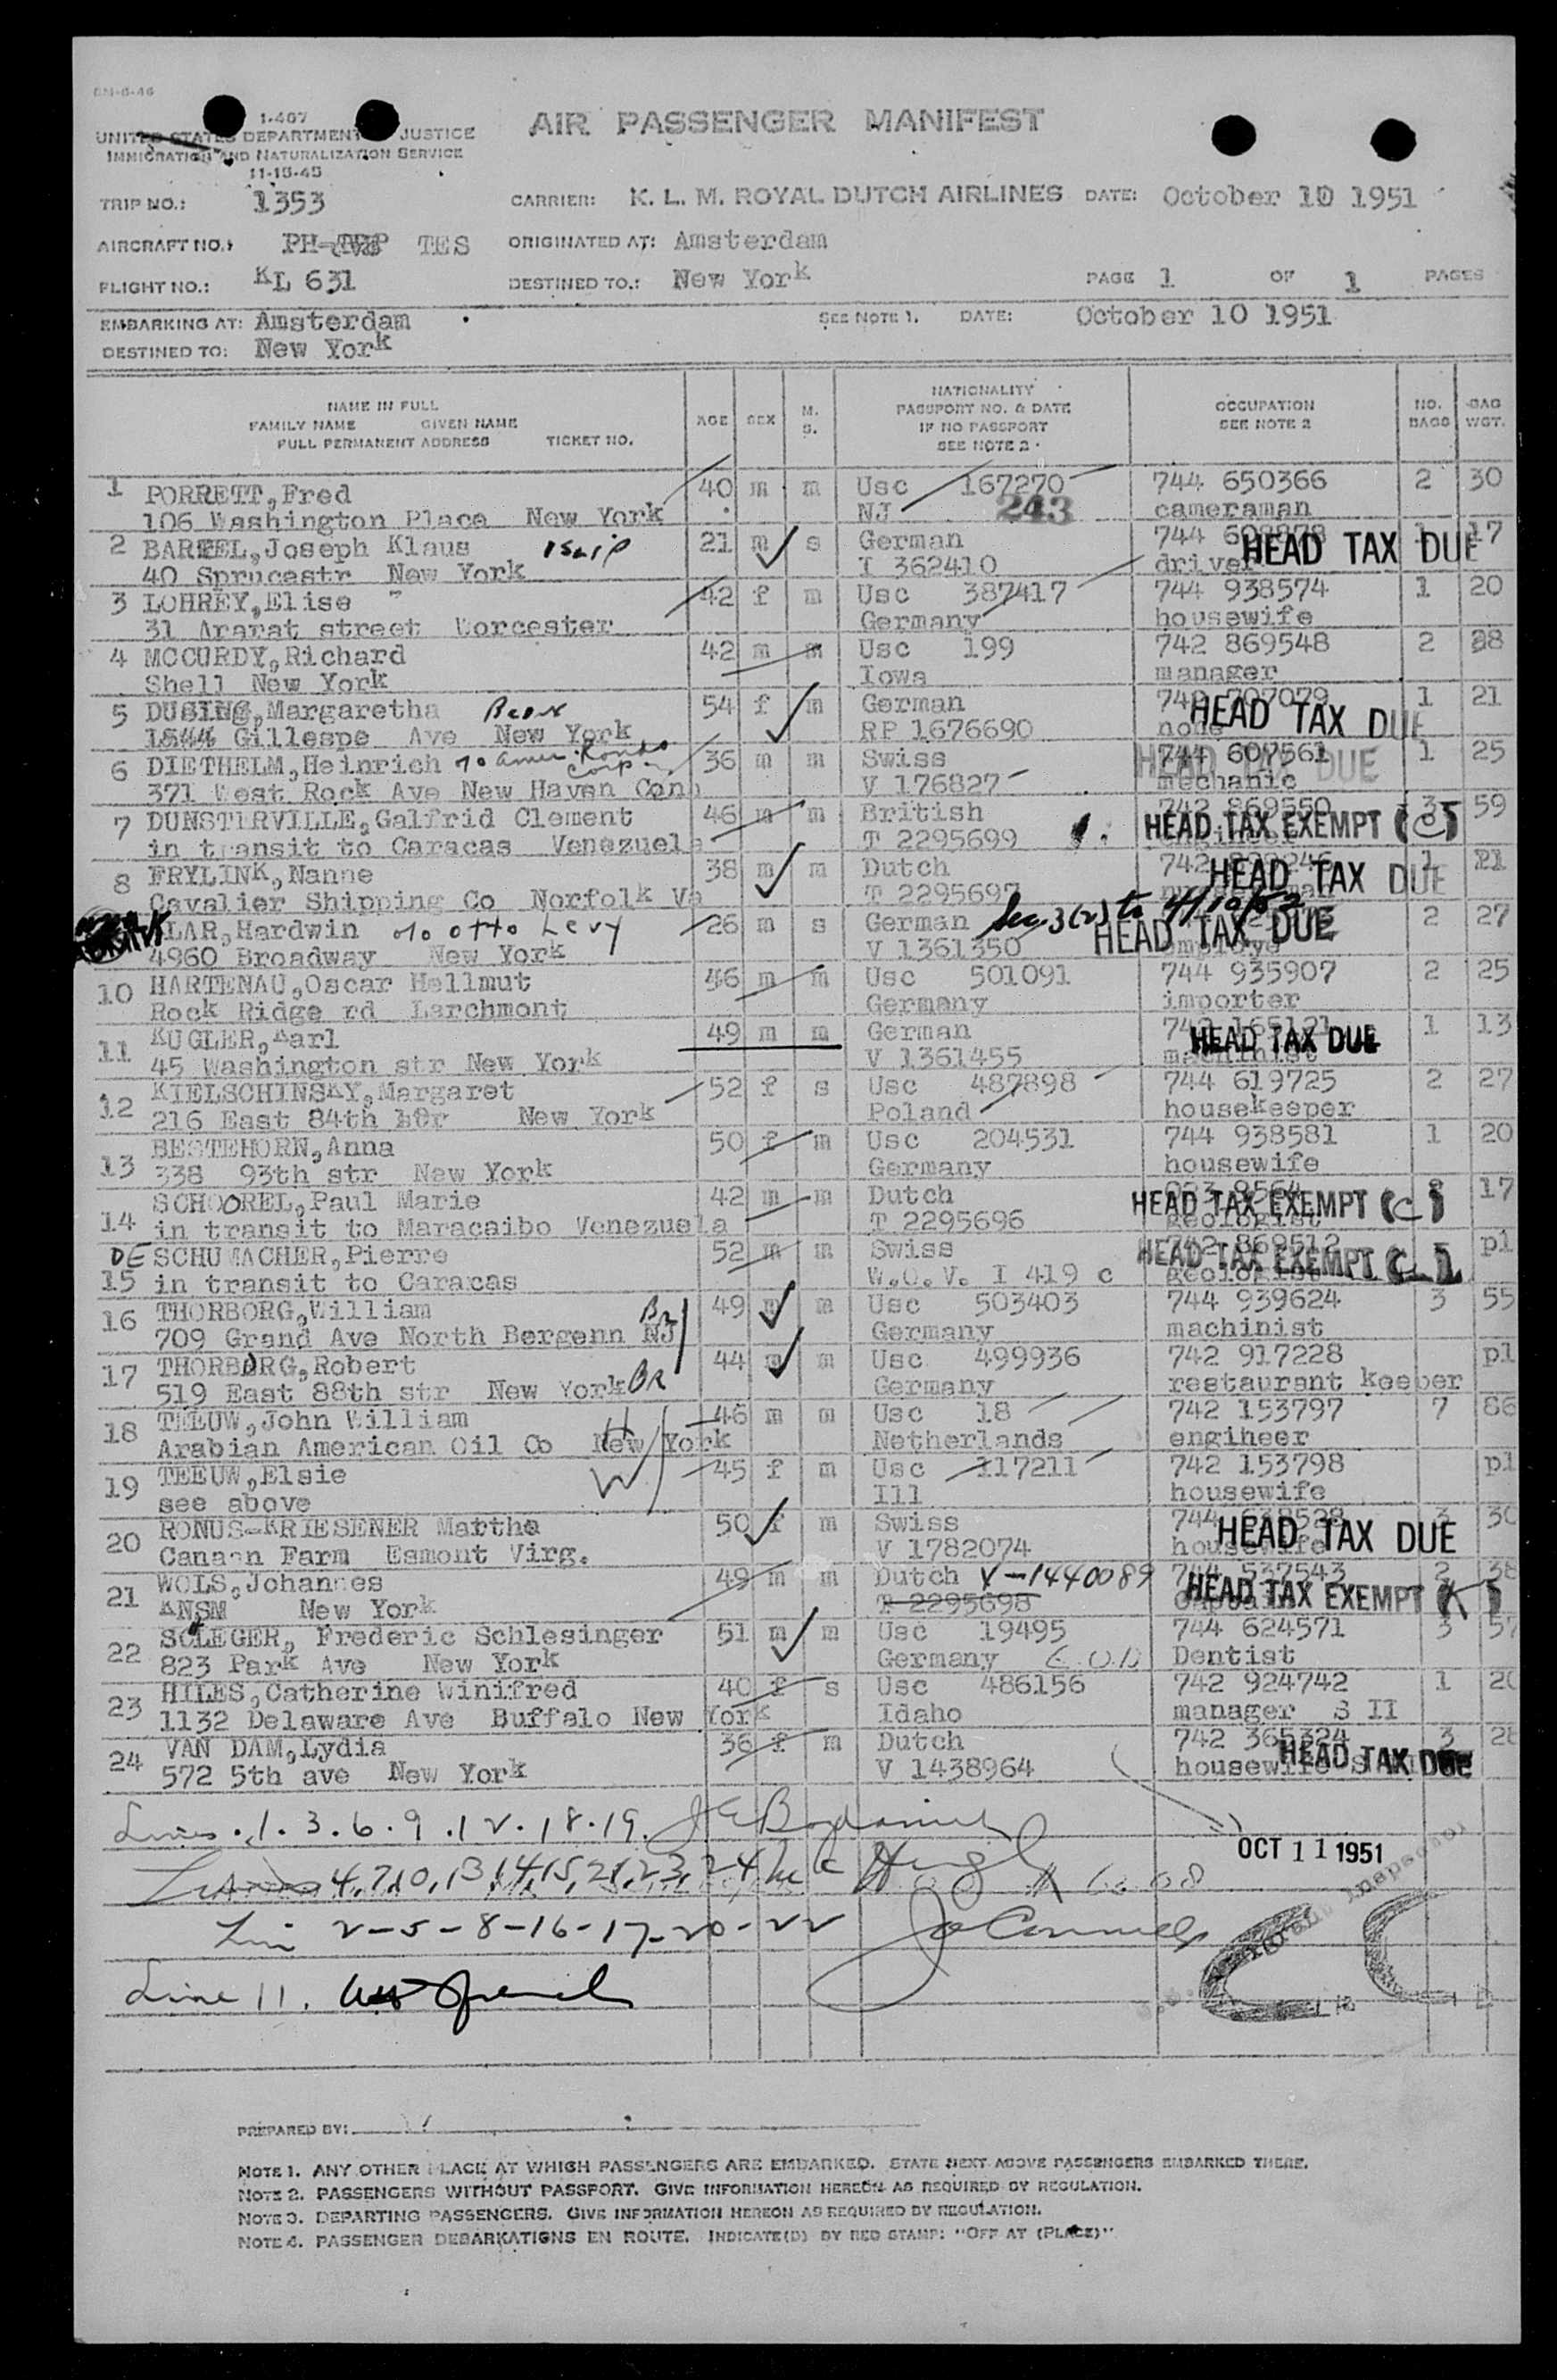 1-407
UNITED STATES DEPARTMENT JUSTICE
IMMIGRATION AND NATURALIZATION SERVICE
11-15-45
AIR PASSENGER MANIFEST
TRIP NO.: 1353 CARRIER: K. L. M. ROYAL DUTCH AIRLINES DATE: October 10 1951
AIRCRAFT NO.: PH- TES ORIGINATED AT: Amsterdam
FLIGHT NO.: KL 631 DESTINED TO.: New York PAGE 1 OF 1 PAGES
EMBARKING AT: Amsterdam SEE NOTE 1. DATE: October 10 1951
DESTINED TO: New York
NAME IN FULL
FAMILY NAME GIVEN NAME
FULL PERMANENT ADDRESS TICKET NO.
AGE SEX M. S.
NATIONALITY
PASSPORT NO. & DATE
IF NO PASSPORT
SEE NOTE 2
OCCUPATION
SEE NOTE 2
NO. BAGS
BAG WGT.
1 PORRETT, Fred 40 m m Usc 167270 744 650366 2 30
106 Washington Place New York NJ 243 cameraman
2 BARTEL, Joseph Klaus 21 m s German 744 HEAD TAX DUE 17
40 Sprucestr New York I 362410 driver
3 LOHREY, Elise 42 f m Usc 387417 744 938574 1 20
31 Ararat street Worcester Germany housewife
4 MCCURDY, Richard 42 m m Usc 199 742 869548 2 28
Shell New York Iowa manager
5 DUSING, Margaretha 54 f m German 1 21
1544 Gillespe Ave New York RP 1676690 none HEAD TAX DUE
6 DIETHELM, Heinrich c/o Amer. Rondo Corp 36 m m Swiss 744 607561 1 25
371 West Rock Ave New Haven Conn V 176827 mechanic HEAD TAX DUE
7 DUNSTERVILLE, Galfrid Clement 46 m m British 742 869550 3 59
in transit to Caracas Venezuela T 2295699 engineer HEAD TAX EXEMPT (C)
8 FRYLINK, Nanne 38 m m Dutch 742 HEAD TAX DUE 1 pl
Cavalier Shipping Co Norfolk Va T 2295697
KLAR, Hardwin c/o Otto Levy 26 m s German Sec 3(2) to 4/10/52 2 27
4960 Broadway New York V 1361350 HEAD TAX DUE employe
10 HARTENAU, Oscar Hellmut 46 m m Usc 501091 744 935907 2 25
Rock Ridge rd Larchmont Germany importer
11 KUGLER, Karl 49 m m German HEAD TAX DUE 1 13
45 Washington str New York V 1361455 machinist
12 KIELSCHINSKY, Margaret 52 f s Usc 487898 744 619725 2 27
216 East 84th str New York Poland housekeeper
13 BESTEHORN, Anna 50 f m Usc 204531 744 938581 1 20
338 93th str New York Germany housewife
14 SCHOOREL, Paul Marie 42 m m Dutch HEAD TAX EXEMPT (C) 17
in transit to Maracaibo Venezuela T 2295696 geologist
DE SCHUMACHER, Pierre 52 m m Swiss 742 869512 pl
15 in transit to Caracas W.O.V. I 419 c geologist HEAD TAX EXEMPT C-1
16 THORBORG, William 49 m m Usc 503403 744 939624 3 55
709 Grand Ave North Bergenn NJ Br Germany machinist
17 THORBORG, Robert 44 m m Usc 499936 742 917228 pl
519 East 88th str New York Br Germany restaurant keeper
18 TEEUW, John William 46 m m Usc 18 742 153797 7 86
Arabian American Oil Co New York H Netherlands engineer
19 TEEUW, Elsie W 45 f m Usc 117211 742 153798 pl
see above Ill housewife
20 RONUS-KRIESENER Martha 50 f m Swiss 744 HEAD TAX DUE 3 30
Canaan Farm Esmont Virg. V 1782074 housewife
21 WOLS, Johannes 49 m m Dutch V-1440089 744 537543 2 38
ANSM New York T 2295698 captain HEAD TAX EXEMPT (K)
22 SCLEGER, Frederic Schlesinger 51 m m Usc 19495 744 624571 3 57
823 Park Ave New York Germany Dentist
23 HILES, Catherine Winifred 40 f s Usc 486156 742 924742 1 20
1132 Delaware Ave Buffalo New York Idaho manager S II
24 VAN DAM, Lydia 36 f m Dutch 742 365324 3 28
572 5th ave New York V 1438964 housewife HEAD TAX DUE
Lines . 1 . 3 . 6 . 9 . 12 . 18 . 19.
OCT 11 1951
4, 7, 10, 13, 14, 15, 21, 23, 24
Lin 2-5-8-16-17-20-22 JoConnell
Line 11.
Inspector
PREPARED BY:
NOTE 1. ANY OTHER PLACE AT WHICH PASSENGERS ARE EMBARKED. STATE NEXT ABOVE PASSENGERS EMBARKED THERE.
NOTE 2. PASSENGERS WITHOUT PASSPORT. GIVE INFORMATION HEREON AS REQUIRED BY REGULATION.
NOTE 3. DEPARTING PASSENGERS. GIVE INFORMATION HEREON AS REQUIRED BY REGULATION.
NOTE 4. PASSENGER DEBARKATIONS EN ROUTE. INDICATE(D) BY RED STAMP: "OFF AT (PLACE)"